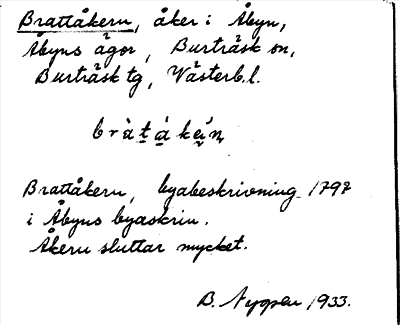 Brattåkern, åker i Åbyn,
Åbyns ägor, Burträsk sn,
Burträsk tg, Västerb.l.
Brattåkern, byabeskrivning 1797
i Åbyns byaskrin.
Åkern sluttar mycket.
B. Nyggen 1933.